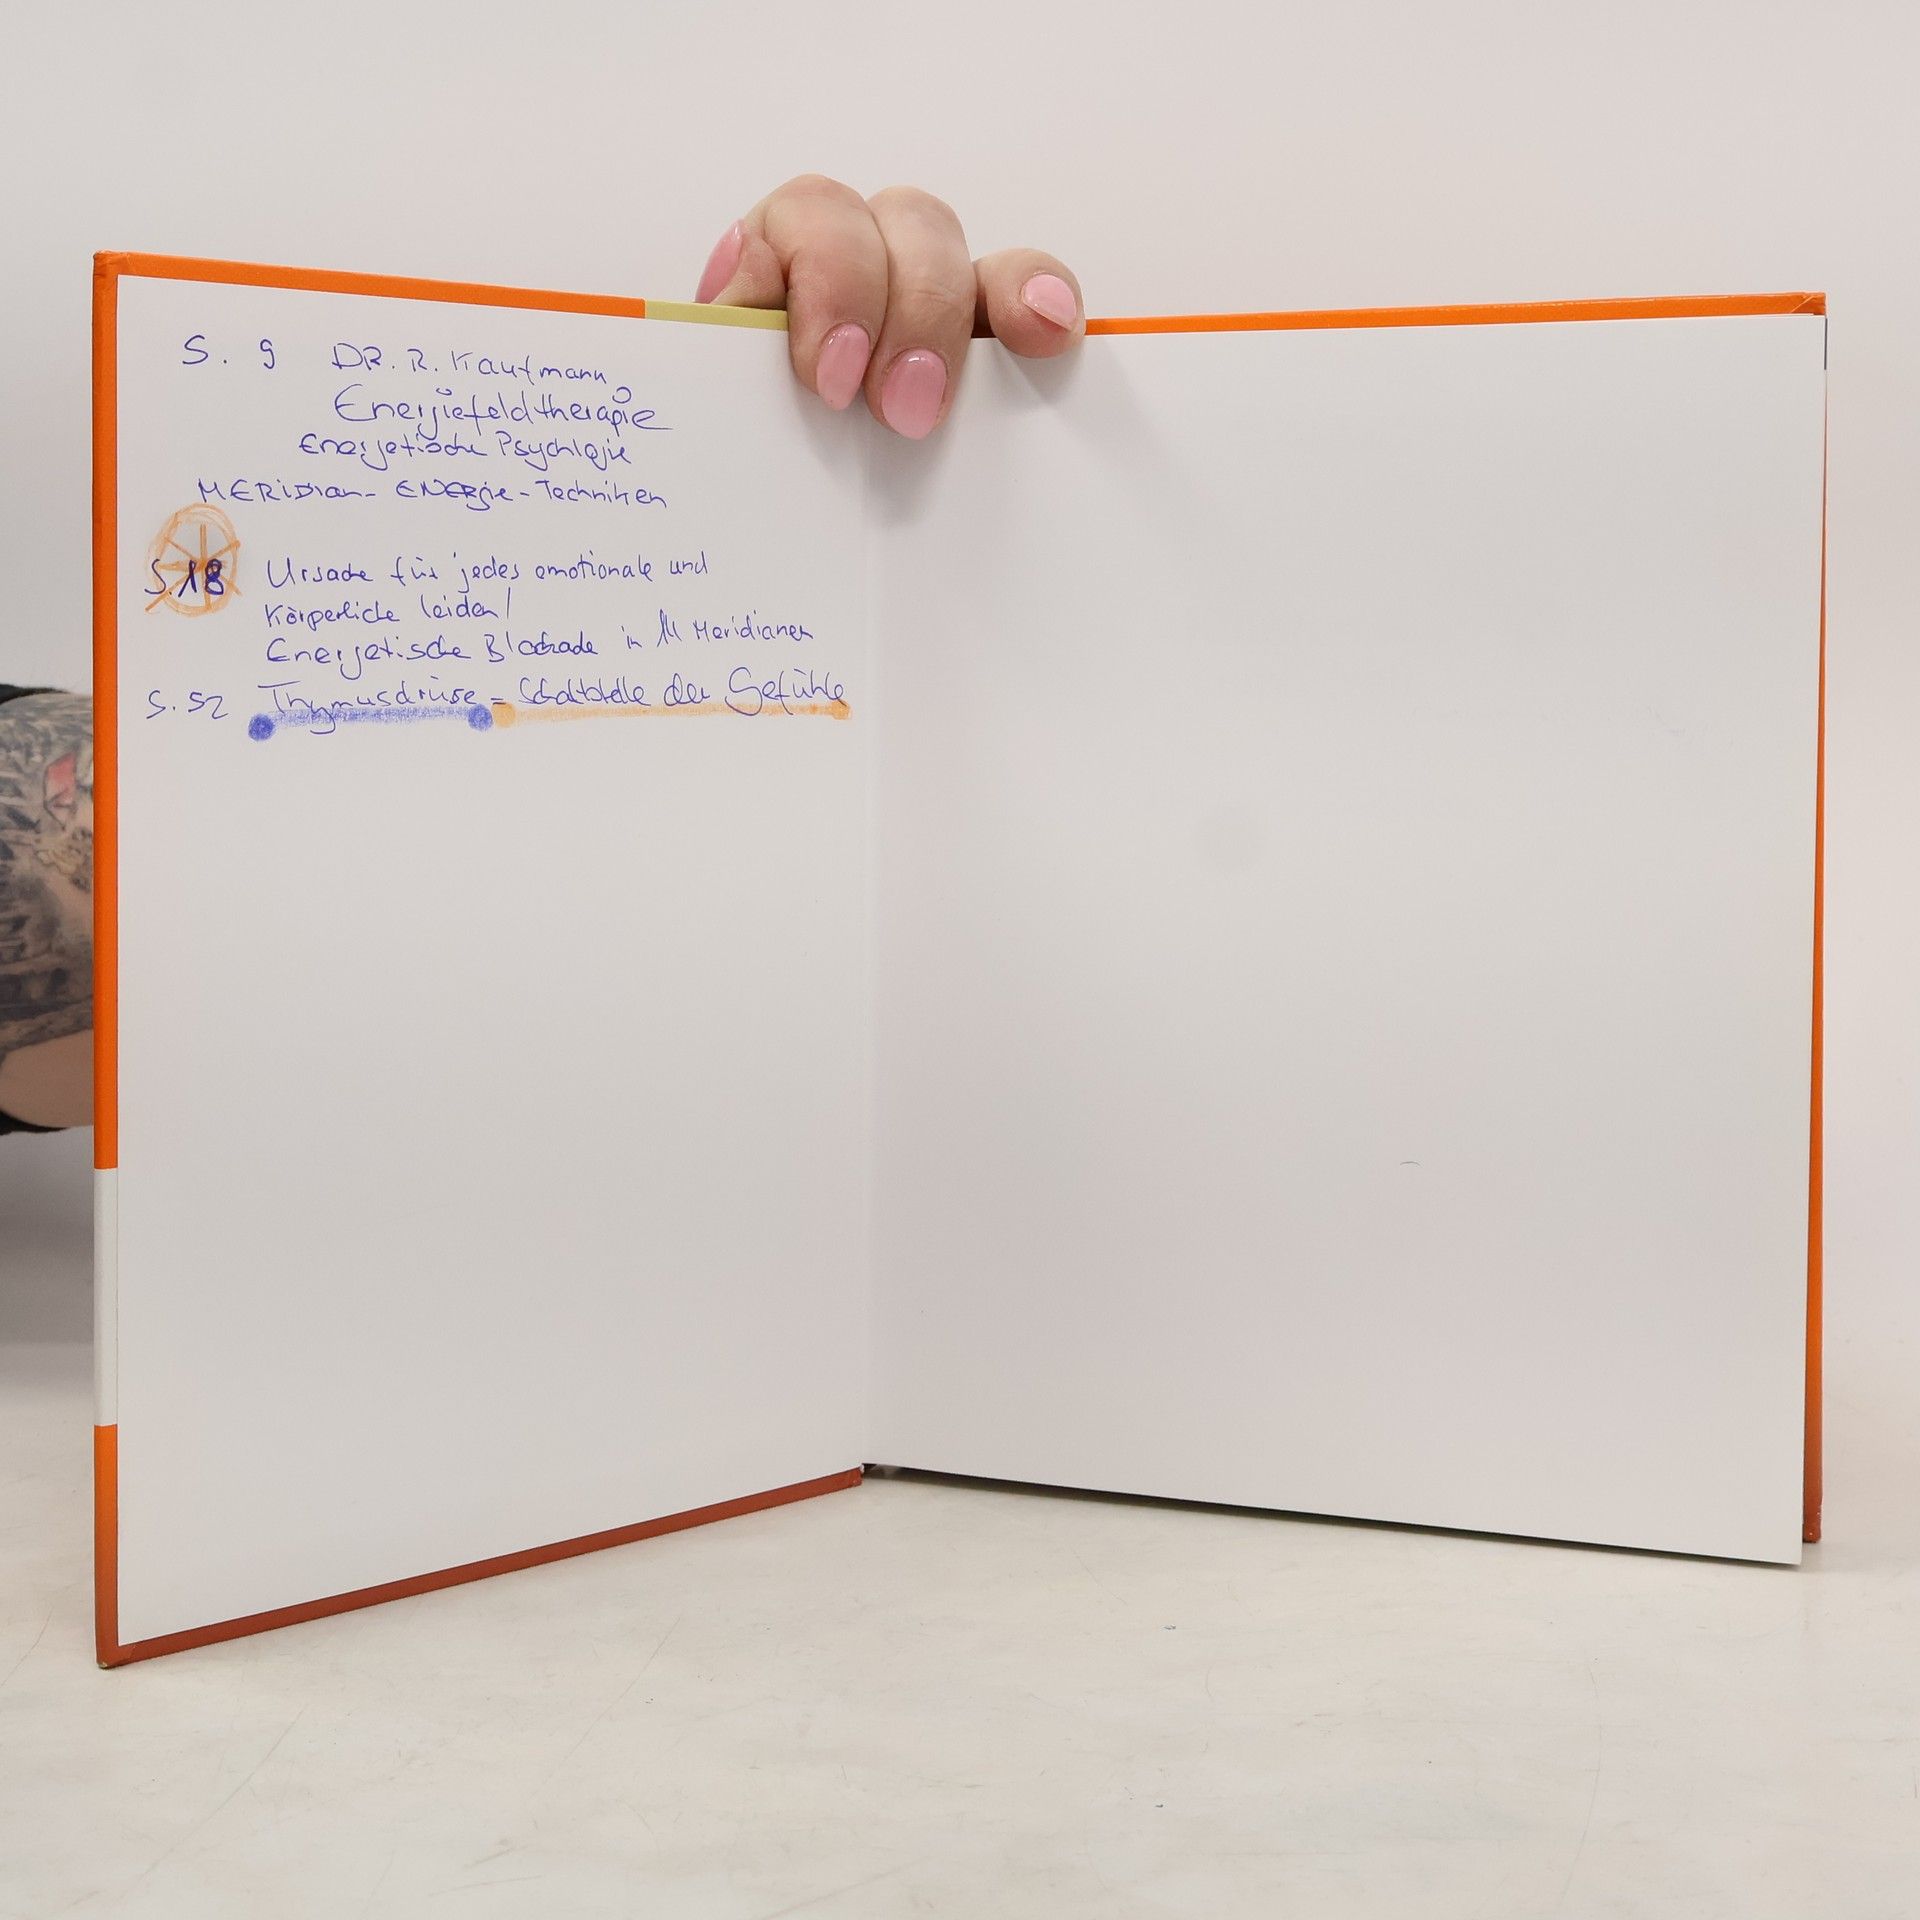 S. 9 DR. R. Kaufmann
Energiefeldtherapie
Energetische Psychlogie
MERiDian- ENERgie-Techniken
S.18 Ursache für jedes emotionale und
Körperliche leiden!
Energetische Blockade in 14 Meridianen
S. 52 Thymusdrüse = Schaltstelle der Gefühle